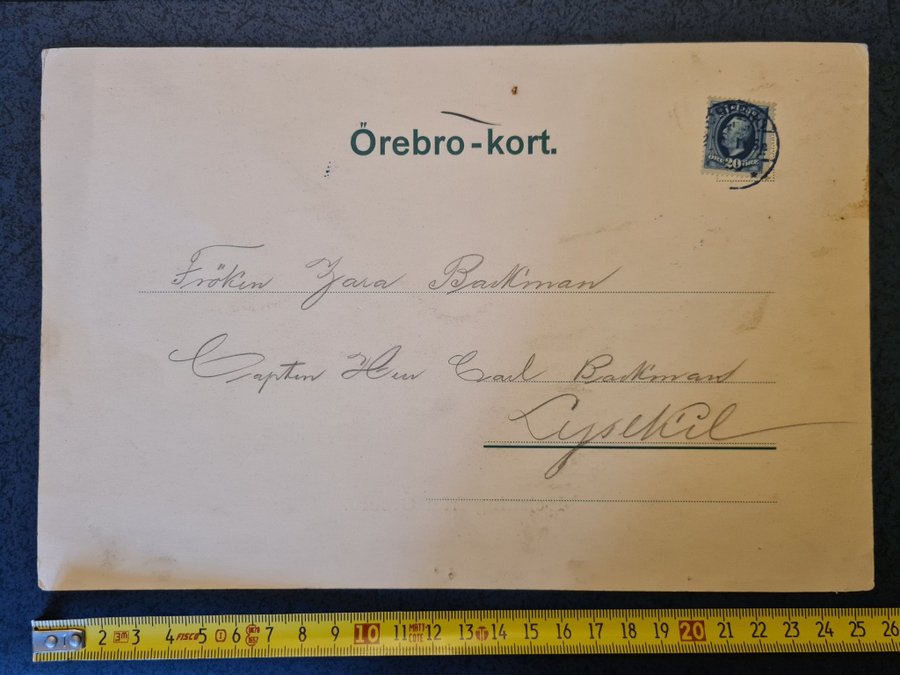 Örebro-kort.
ÖRE 20 ÖRE
Fröken Zara Backman
Capten Herr Carl Backman
Lysekil
1 2 3 3m 4 FISCO 5 1 6 7 8 9 10 11 MATT-COTE 12 13 14 15 16 17 18 19 20 21 22 23 24 25 26